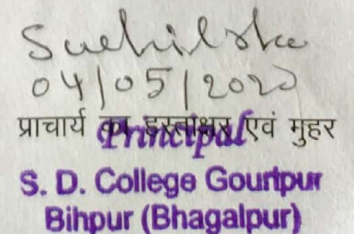 04/05/2020
प्राचार्य का हस्ताक्षर एवं मुहर
Principal
S. D. College Gouripur
Bihpur (Bhagalpur)